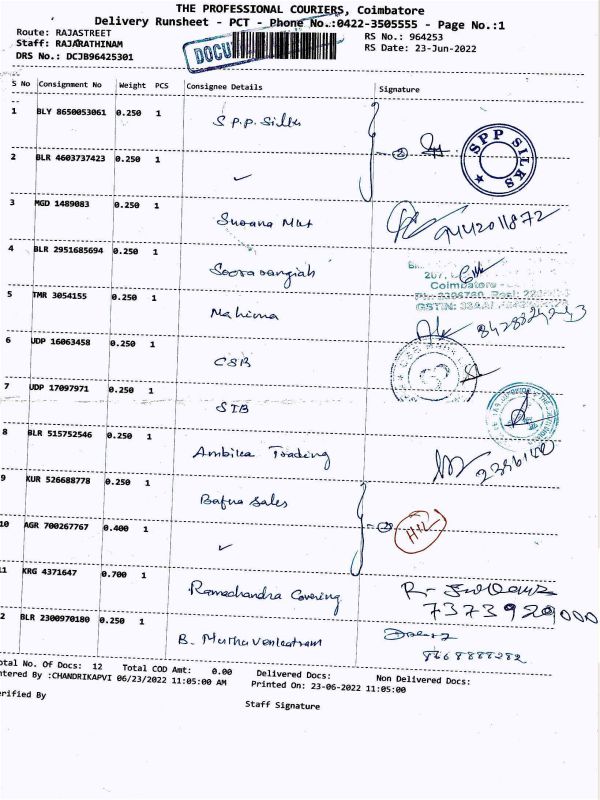 THE PROFESSIONAL COURIERS, Coimbatore
Delivery Runsheet - PCT - Phone No.:0422-3505555 - Page No.:1
Route: RAJASTREET
RS No.: 964253
Staff: RAJARATHINAM
RS Date: 23-Jun-2022
DRS No.: DCJB96425301
DOCU
S No Consignment No Weight PCS Consignee Details Signature
1 BLY 8650053061 0.250 1 S P.P. Silks
SPP SILKS
2 BLR 4603737423 0.250 1 ✓
3 MGD 1489083 0.250 1 Suvana Mkt
9442011872
4 BLR 2951685694 0.250 1
Coimbatore
5 TMR 3054155 0.250 1 Mahima
6 UDP 16063458 0.250 1 CSB
7 UDP 17097971 0.250 1 SIB
8 BLR 515752546 0.250 1 Ambika Trading
9 KUR 526688778 0.250 1 Bafna Sales
10 AGR 700267767 0.400 1 ✓
HIL
11 KRG 4371647 0.700 1 Ramachandra Covering
7373929000
2 BLR 2300970180 0.250 1 B. Muthu Venkatram
8668888282
otal No. Of Docs: 12 Total COD Amt: 0.00 Delivered Docs: Non Delivered Docs:
ntered By :CHANDRIKAPVI 06/23/2022 11:05:00 AM Printed On: 23-06-2022 11:05:00
erified By
Staff Signature